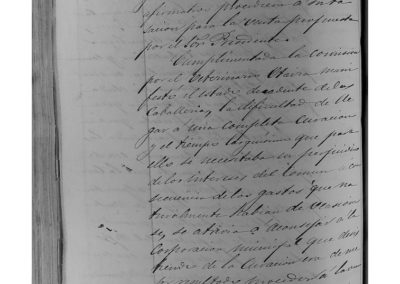 afirmativa procediera á su ta-
sacion para la venta propuesta
por el Sor. Presidente.
Cumplimentada la comision
por el Veterinario Otaera mani-
festó el estado decadente de las
Caballerias, la dificultad de lle-
gar á una completa curacion
y el tiempo larguisimo que para
ello se necesitaba en perjuicio
de los intereses del comun á con-
secuencia de los gastos que na-
turalmente habian de
se, so atrevia á aconsejar á la
Corporacion que desis-
tiendo de la curacion
procediera á la